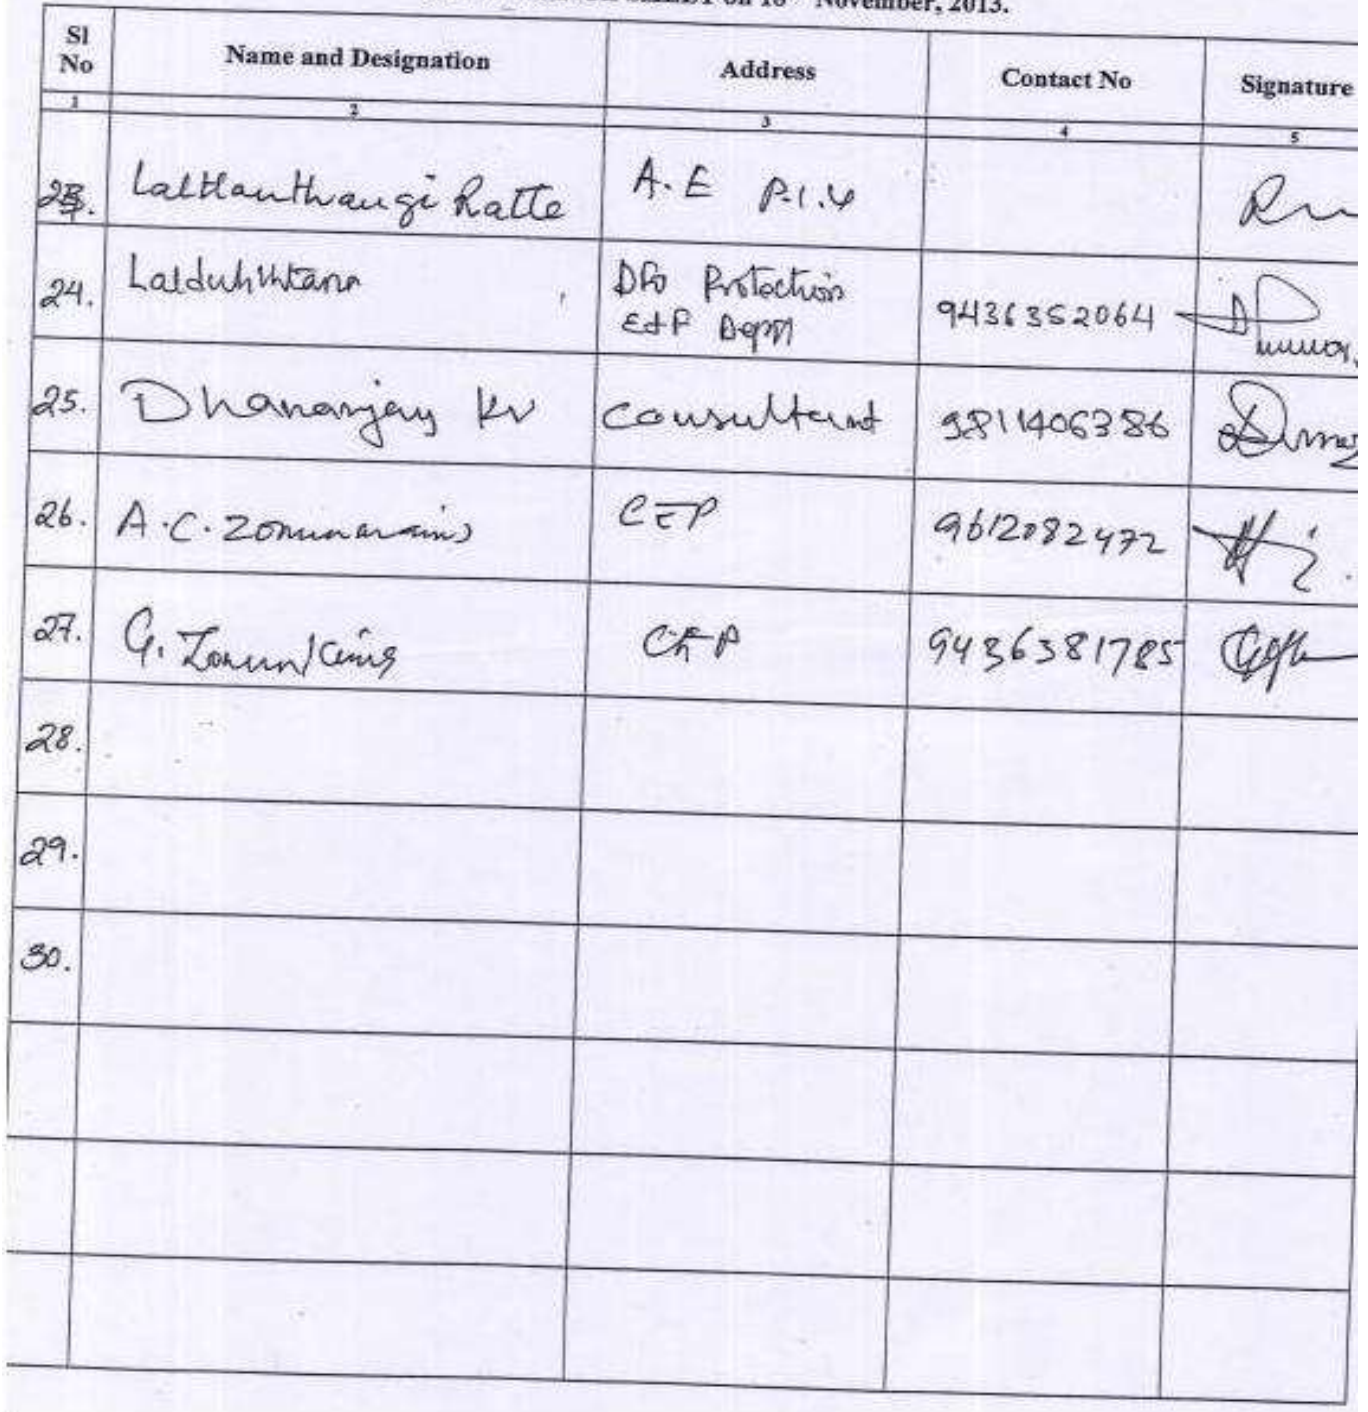 November, 2013.
Sl No Name and Designation Address Contact No Signature
1 2 3 4 5
23. Lalthanthangi Ralte A.E P.I.U
24. Lalduhthlana DFO Protection 9436352064
E&F Deptt
25. Dhananjay Kr Consultant 9811406386
26. A.C. 9612082472
27. G. CEP 9436381785
28.
29.
30.